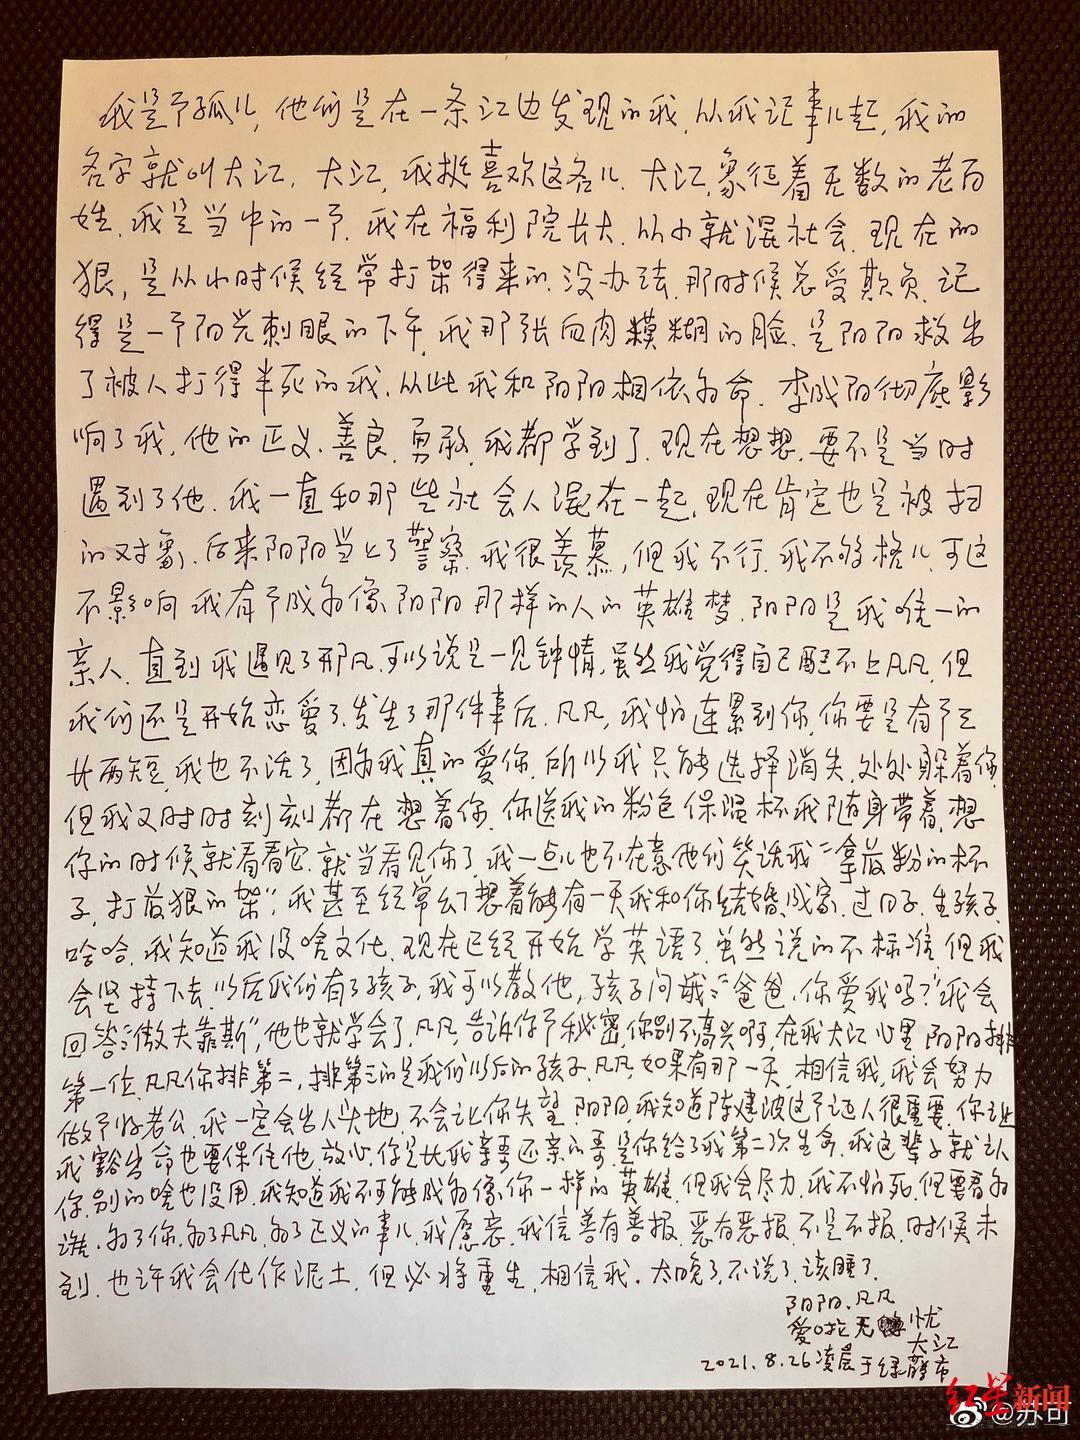 我是个孤儿,他们是在一条江边发现的我.从我记事儿起,我的
名字就叫大江.大江,我挺喜欢这名儿.大江,象征着无数的老百
姓.我是当中的一个.我在福利院长大.从小就混社会.现在的
狠,是从小时候经常打架得来的.没办法.那时候总受欺负.记
得是一个阳光刺眼的下午,我那张血肉模糊的脸.是阳阳救出
了被人打得半死的我.从此我和阳阳相依为命.李成阳彻底影
响了我,他的正义.善良.勇敢,我都学到了.现在想想,要不是当时
遇到了他.我一直和那些社会人混在一起,现在肯定也是被扫
的对象.后来阳阳当上了警察.我很羡慕,但我不行.我不够格儿.可这
不影响我有个成为像阳阳那样的人的英雄梦.阳阳是我唯一的
亲人.直到我遇见了邢凡.可以说是一见钟情,虽然我觉得自己配不上凡凡,但
我们还是开始恋爱了.发生了那件事后.凡凡,我怕连累到你,你要是有个三
长两短.我也不活了,因为我真的爱你.所以我只能选择消失.处处躲着你.
但我又时时刻刻都在想着你.你送我的粉色保温杯我随身带着,想
你的时候就看看它.就当看见你了.我一点儿也不在意他们笑话我:“拿最粉的杯
子,打最狠的架”,我甚至经常幻想着能有一天我和你结婚,成家.过日子.生孩子.
哈哈.我知道我没啥文化.现在已经开始学英语了.虽然说的不标准.但我
会坚持下去.以后我们有了孩子,我可以教他,孩子问我:“爸爸.你爱我吗?”我会
回答:“傲夫靠斯”,他也就学会了.凡凡,告诉你个秘密,你别不高兴啊,在我大江心里.阳阳排
第一位.凡凡你排第二,排第三的是我们以后的孩子.凡凡,如果有那一天,相信我,我会努力
做个好老公.我一定会出人头地.不会让你失望.阳阳,我知道陈建波这个证人很重要.你让
我豁出命也要保住他.放心.你是比我亲哥还亲的哥.是你给了我第二次生命.我这辈子就认
你.别的啥也没用.我知道我不可能成为像你一样的英雄.但我会尽力.我不怕死.但要看为
谁.为了你.为了凡凡.为了正义的事儿.我愿意.我信善有善报.恶有恶报.不是不报.时候未
到.也许我会化作泥土.但必将重生.相信我.太晚了.不说了.该睡了.
阳阳.凡凡
爱 无 忧
大江
2021.8.26凌晨于绿藤市
红星新闻
@苏可